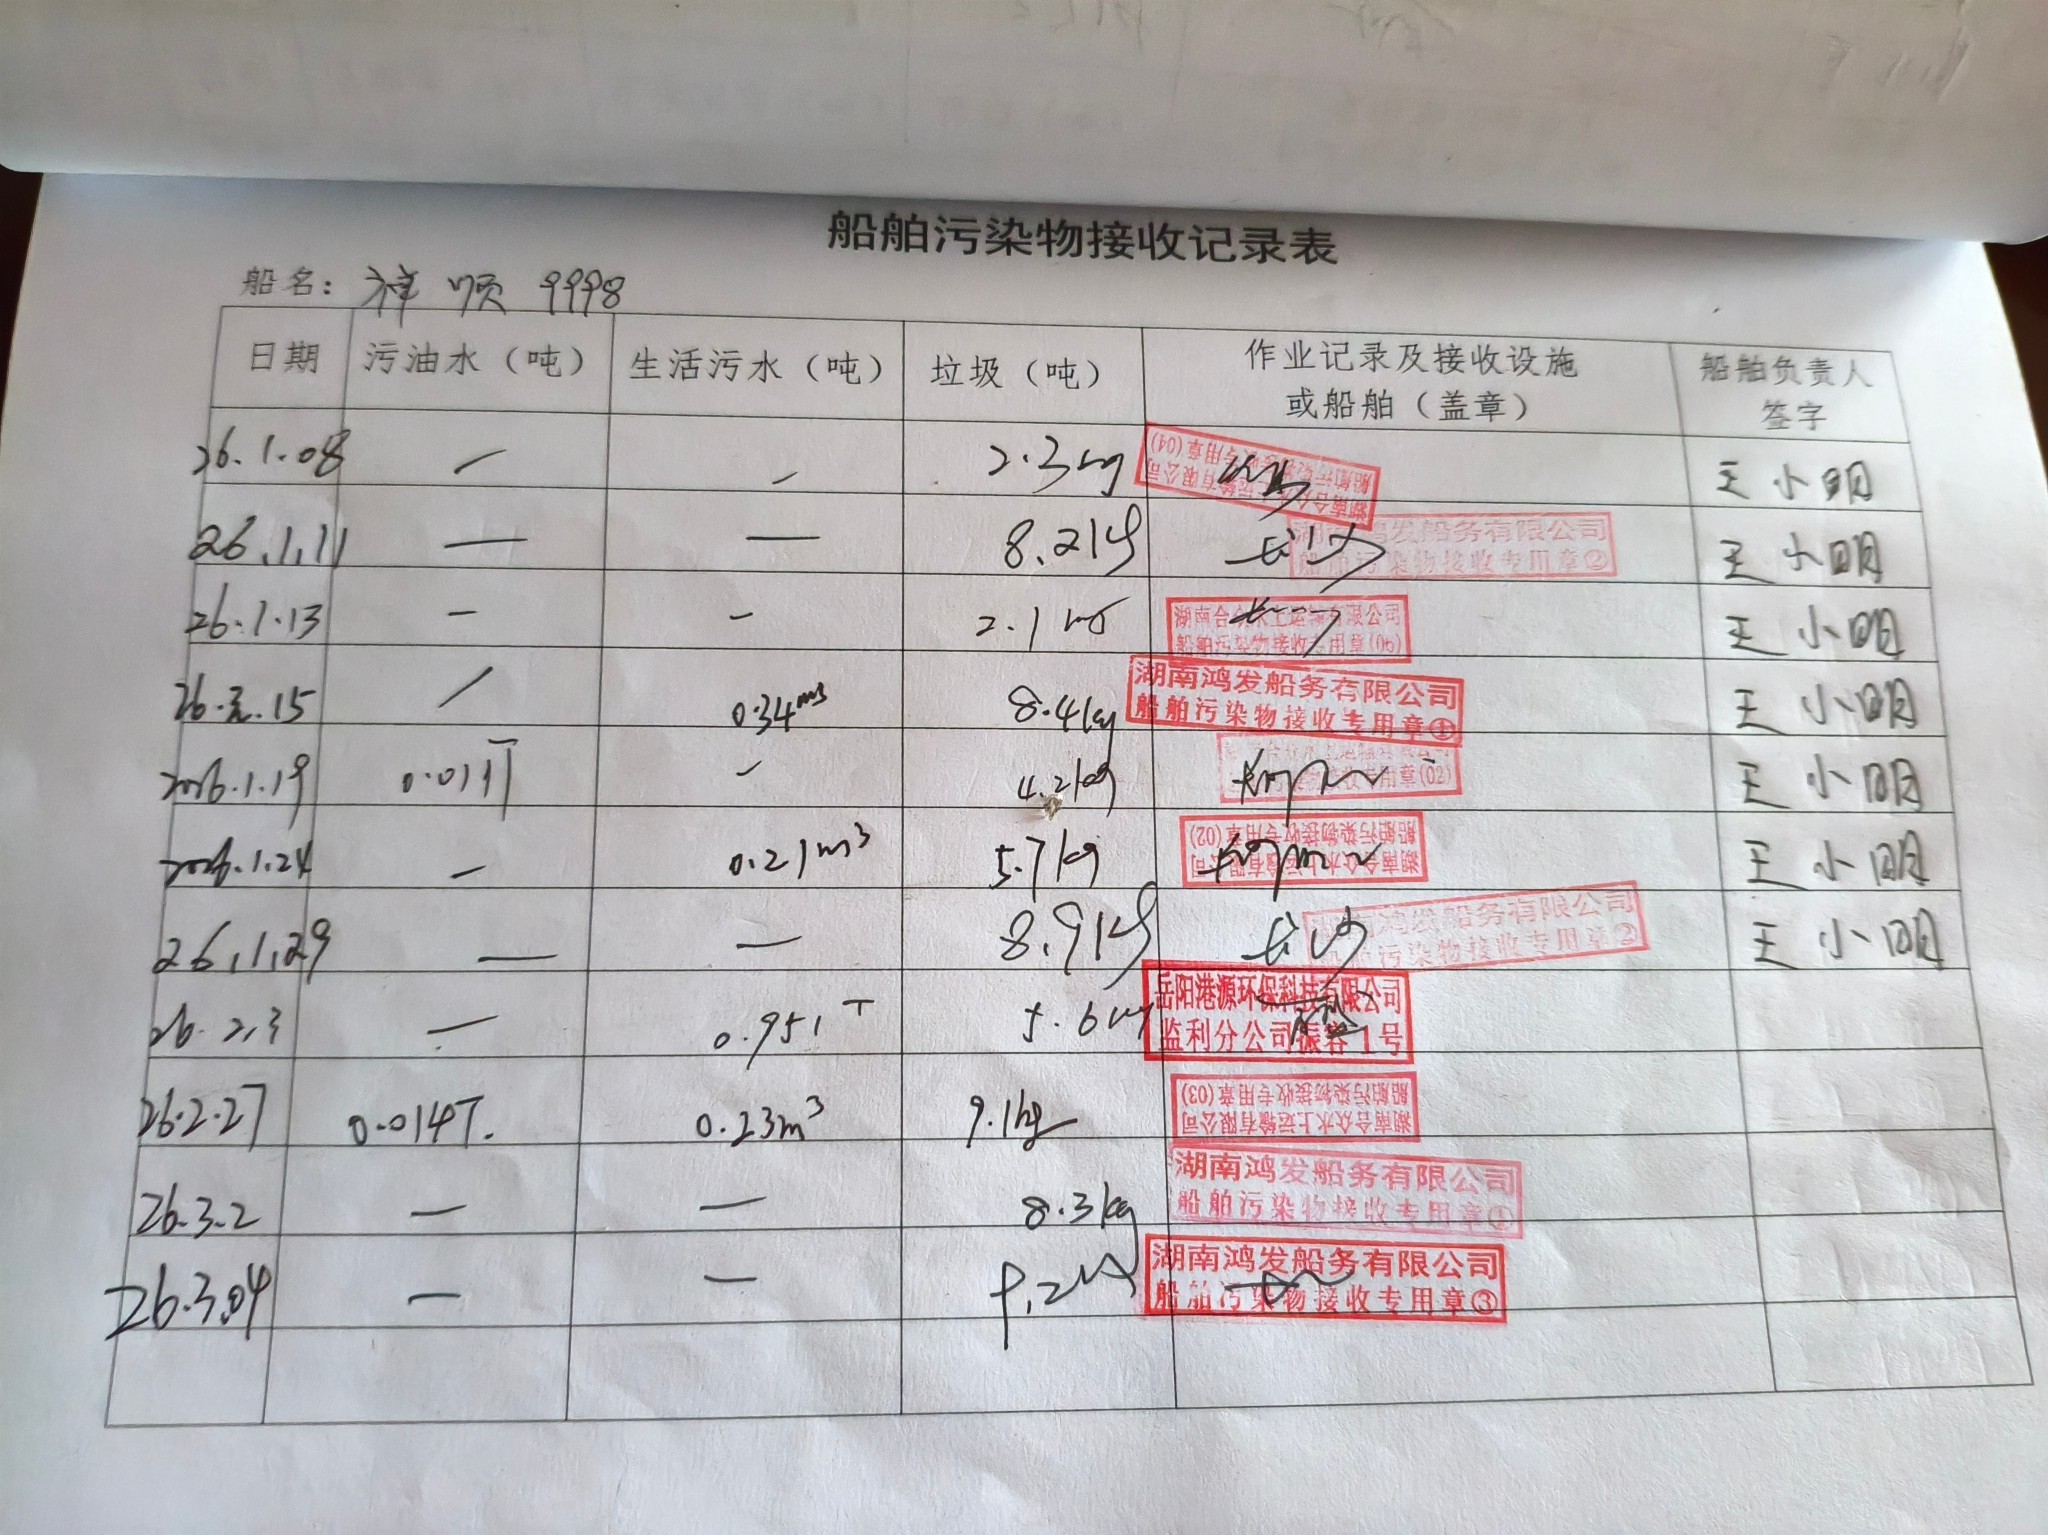 船舶污染物接收记录表
船名：祥顺 9998
日期 污油水（吨） 生活污水（吨） 垃圾（吨） 作业记录及接收设施或船舶（盖章） 船舶负责人签字
26.1.08 — — 2.3kg 湖南合众水上运输有限公司 船舶污染物接收专用章(04) 王小明
26.1.11 — — 8.2kg 长沙 湖南鸿发船务有限公司 船舶污染物接收专用章② 王小明
26.1.13 — — 2.1kg 湖南合众水上运输有限公司 船舶污染物接收专用章(06) 王小明
26.元.15 / 0.34m³ 8.4kg 湖南鸿发船务有限公司 船舶污染物接收专用章① 王小明
2026.1.19 0.01T — 4.2kg 接收专用章(02) 王小明
2026.1.24 — 0.21m³ 5.7kg 湖南合众水上运输有限公司 船舶污染物接收专用章(02) 王小明
26.1.29 — — 8.9kg 长沙 湖南鸿发船务有限公司 船舶污染物接收专用章② 王小明
26.2.3 — 0.951T 5.6kg 岳阳港源环保科技有限公司 监利分公司振容1号
26.2.27 0.014T. 0.23m³ 9.1kg 湖南合众水上运输有限公司 船舶污染物接收专用章(03)
26.3.2 — — 8.3kg 湖南鸿发船务有限公司 船舶污染物接收专用章①
26.3.04 — — 9.2kg 湖南鸿发船务有限公司 船舶污染物接收专用章③